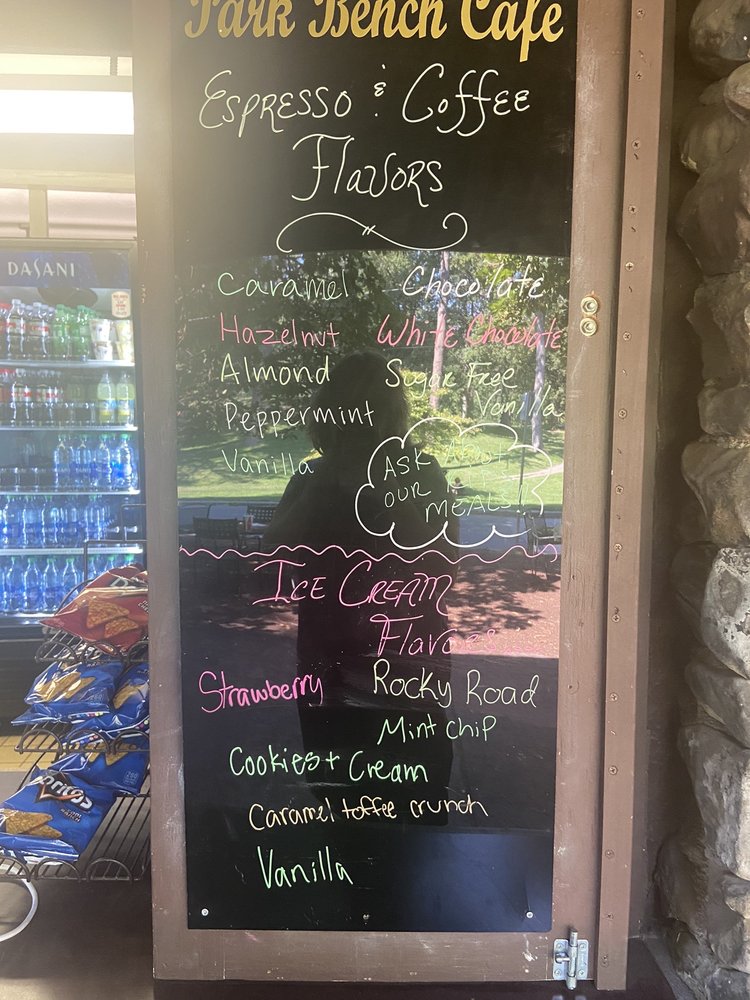 Park Bench Cafe
ESPRESSO & COFFEE
FLAVORS
Caramel Chocolate
Hazelnut White Chocolate
Almond Sugar Free
Vanilla
Peppermint
Vanilla
ASK ABOUT
OUR
MEALS!
ICE CREAM
Flavors
Strawberry Rocky Road
Mint chip
Cookies + Cream
Caramel toffee crunch
Vanilla
DASANI
Doritos